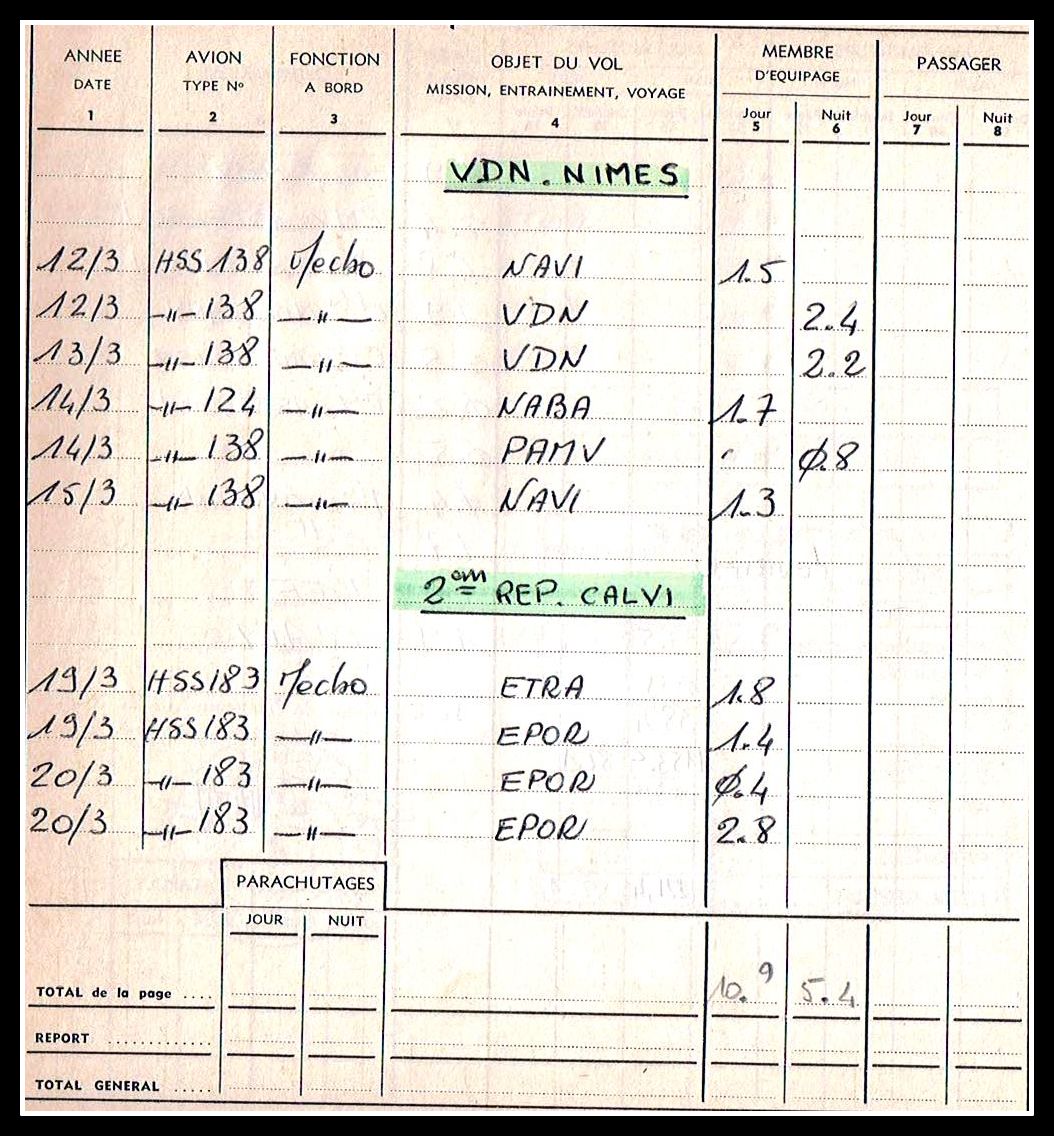 ANNEE AVION FONCTION OBJET DU VOL MEMBRE D'EQUIPAGE PASSAGER
DATE TYPE Nº A BORD MISSION, ENTRAINEMENT, VOYAGE
Jour Nuit Jour Nuit
1 2 3 4 5 6 7 8
VDN. NIMES
12/3 HSS 138 Mecbo NAVI 1.5
12/3 —"— 138 —"— VDN 2.4
13/3 —"— 138 —"— VDN 2.2
14/3 —"— 124 —"— NABA 1.7
14/3 —"— 138 —"— PAMV Ø.8
15/3 —"— 138 —"— NAVI 1.3
2em REP. CALVI
19/3 HSS 183 Mecbo ETRA 1.8
19/3 HSS 183 —"— EPOR 1.4
20/3 —"— 183 —"— EPOR Ø.4
20/3 —"— 183 —"— EPOR 2.8
PARACHUTAGES
JOUR NUIT
TOTAL de la page .... 10.9 5.4
REPORT ............
TOTAL GENERAL .....